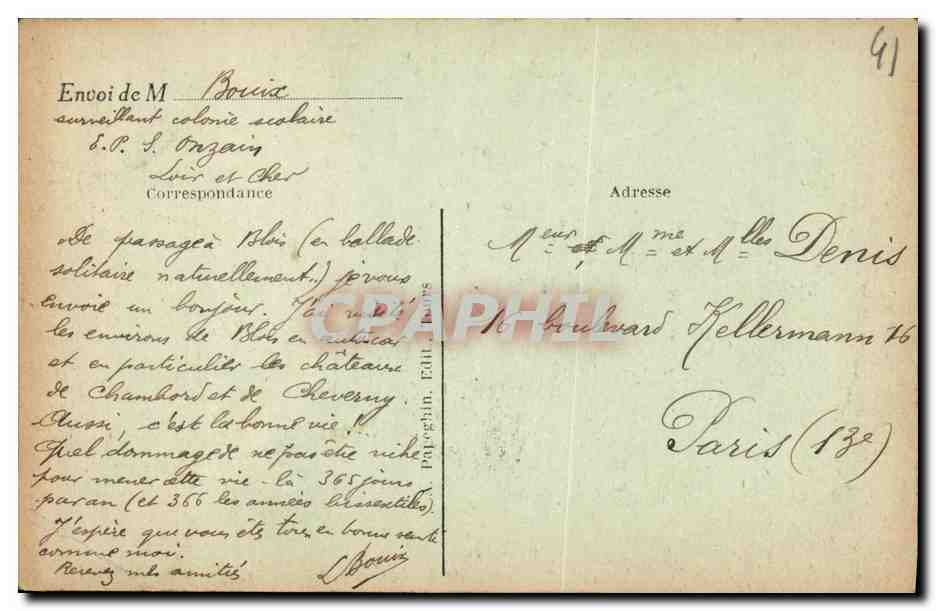 41
Envoi de M Bouix
surveillant colonie scolaire
E.P.S. Onzain
Loir et Cher
Correspondance
De passage à Blois (en ballade
solitaire naturellement..) je vous
envoie un bonjour. J'ai visité
les environs de Blois en autocar
et en particulier les châteaux
de Chambord et de Cheverny.
Aussi, c'est la bonne vie !
Quel dommage de ne pas être riche
pour mener cette vie-là 365 jours
par an (et 366 les années bissextiles).
J'espère que vous êtes tous en bonne santé
comme moi.
Recevez mes amitiés
L Bouix
Papeghin, Edit., Tours
CPAPHIL
Adresse
Meur et Mme et Mlles Denis
16 boulevard Kellermann 16
Paris (13e)